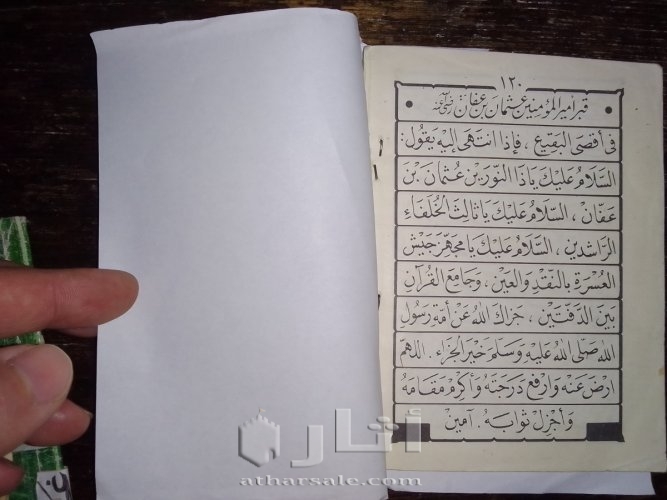 ١٢٠
قبر أمير المؤمنين عثمان بن عفان رضي الله عنه
في أقصى البقيع ، فإذا انتهى إليه يقول:
السَّلامُ عَليْكَ يَاذَا النّورَيْن عُثمان بْنَ
عفّانْ ، السّلامُ عَليْكَ يَا ثالِثَ الخُلفَاءِ
الرّاشدين ، السَّلامُ عَليْكَ يَا مجَهّزَ جَيْش
العُسْرَة بالنّقدِ وَالعَيْن ، وَجَامِعَ القُرآنِ
بَيْن الدَّفّتَيْن ، جَزاكَ اللهُ عَنْ أمّة رَسُول
الله صَلّى اللهُ عَليْه وَسَلّم خَيرَ الجَزاءِ . اللهمّ
ارْضَ عَنْه وَارْفع دَرجَتهُ وَأكرِمْ مَقَامَهُ
وَأجْزِلْ ثوابَهُ . آمينْ
أثار
atharsale.com